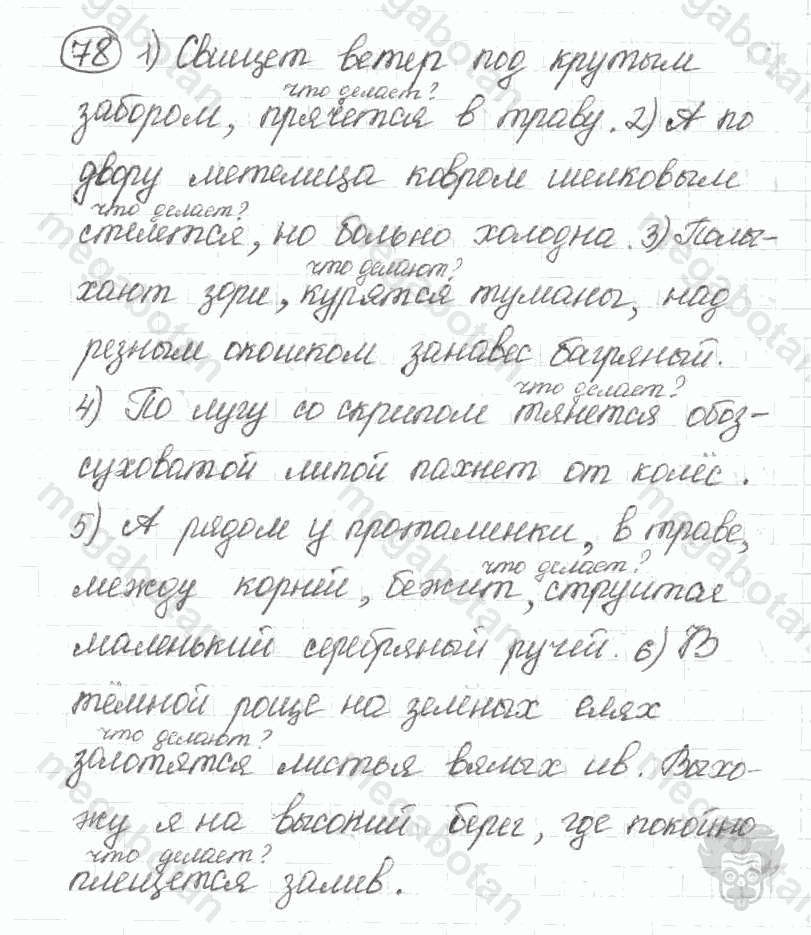 78 1) Свищет ветер под крутым
что делает?
забором, прячется в траву. 2) А по
двору метелица ковром шелковым
что делает?
стелется, но больно холодна. 3) Полы-
что делают?
хают зори, курятся туманы, над
резным окошком занавес багряный.
что делает?
4) По лугу со скрипом тянется обоз-
суховатой липой пахнет от колёс.
5) А рядом у проталинки, в траве,
что делает?
между корней, бежит, струится
маленький серебряный ручей. 6) В
тёмной роще на зелёных елях
что делают?
золотятся листья вялых ив. Выхо-
жу я на высокий берег, где покойно
что делает?
плещется залив.
megabotan